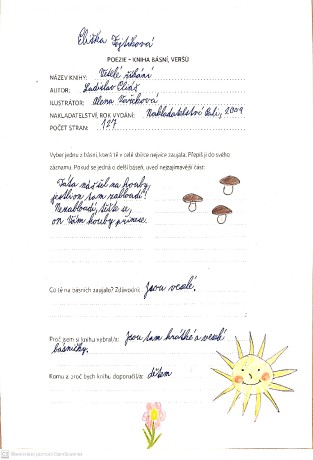 Eliška Fojtíková
POEZIE – KNIHA BÁSNÍ, VERŠŮ
NÁZEV KNIHY: Veselé říkání
AUTOR: Ladislav
ILUSTRÁTOR: Alena
NAKLADATELSTVÍ, ROK VYDÁNÍ: Nakladatelství 2009
POČET STRAN: 127
Vyber jednu z básní, která tě v celé sbírce nejvíce zaujala. Přepiš ji do svého
záznamu. Pokud se jedná o delší báseň, uveď nejzajímavější část:
Táta na houby,
jestlipak tam nabloudí?
Nenabloudí, těšte se,
on Vám houby přinese.
Co tě na básních zaujalo? Zdůvodni: Jsou veselé.
Proč jsem si knihu vybral/a: Jsou tam krátké a veselé
básničky.
Komu a proč bych knihu doporučil/a: dětem